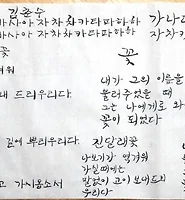 김춘수
바사아 자차카타파하
가나다
바사아 자차카타파하하
자차카
꽃
꽃
겨워
내가 그의 이름을
불러주었을 때
내 드리우리다.
그는 나에게로 와
꽃이 되었다
길에 뿌리우리다.
진달래꽃
나보기가 역겨워
가실때에는
말없이 고이 보내드리
고 가시옵소서
우리다